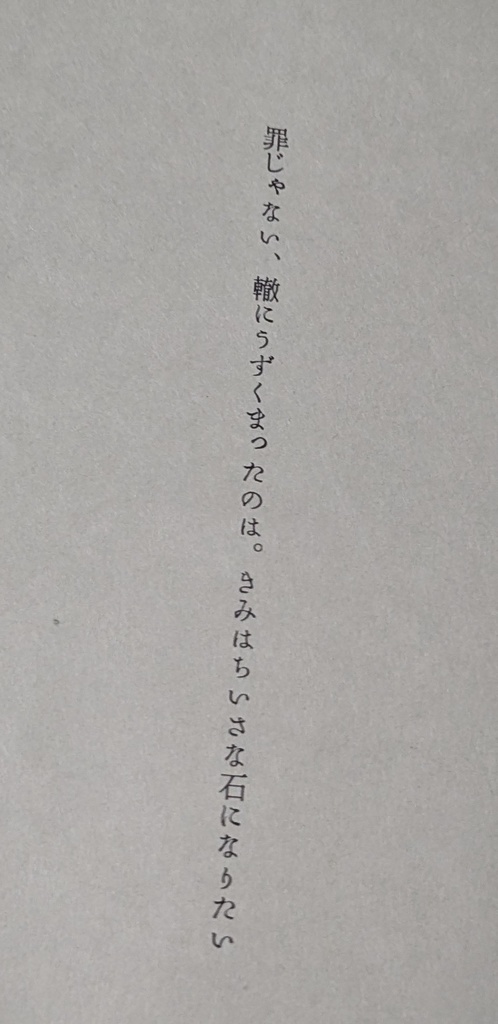 罪じゃない、轍にうずくまったのは。きみはちいさな石になりたい